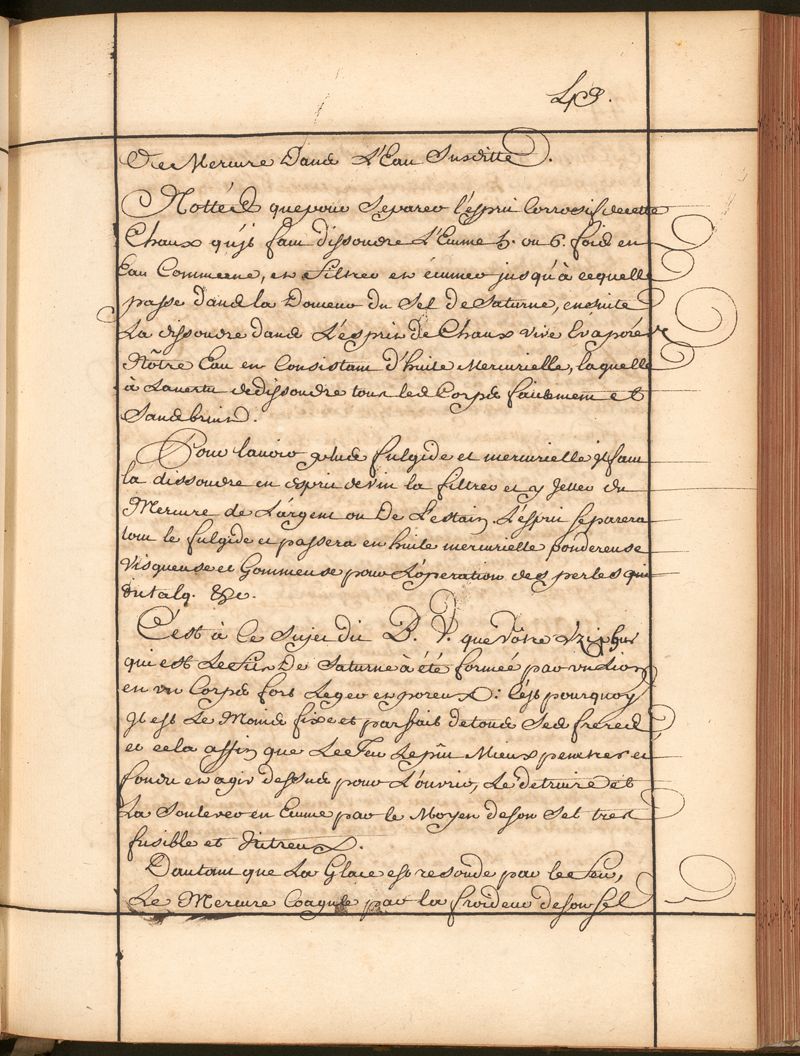 49.
De Mercure Dans L'Eau Susditte.
Nottés que pour Separer l'esprit Corrosif de cette
Chaux qu'jl faut dissoudre L'Eume 5. ou 6. fois en
Eau Commune, et Filtrer et éumer jusqu'à ce quelle
passe dans la Domeur du Sel de Saturne, ensuite
La dissoudre dans L'esprit de Chaux vive Evaporés
Nôtre Eau en Consistant d'huile Mercurielle, laquelle
à La vertu de dissoudre tous les Corps facilement et
Sans bruit.
Pour l'avoir plus fulgide et mercurielle jl faut
la dissoudre en esprit de vin la filtrer et y Jetter du
Mercure de L'argent ou De L'estain, L'esprit Separera
tout le fulgide et passera en huile mercurielle pondereuse
Visqueuse et Gommeuse pour L'operation des perles qui
du talq. &c.
C'est à Ce Sujet du B. V. que Vôtre
qui est Le Fils De Saturne à été formée par un Lion
en un Corps fort Leger et poreux: C'est pourquoy
jl est Le Moins fixe et parfait de tous Ses freres
et cela affin que Le Feu Le pût Mieux penetrer et
fondre et agir dessus pour L'ouvrir, Le detruire et
La Soulever en Eume par le Moyen de son Sel tres
fusible et Nitreux.
Dautant que La Glace est resoude par le Feu,
Le Mercure Coagule par la froideur de son Sel